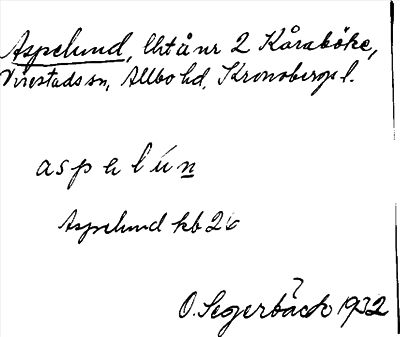 Aspelund, Urtå nr 2 Kåraböke,
Virestads sn, Allbo hd, Kronobergs l.
aspəlún
Aspelund kb 26
O. Segerbäck 1932